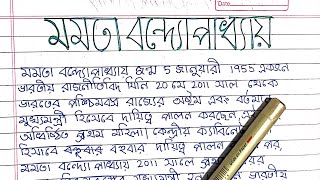 মমতা বন্দ্যোপাধ্যায়
মমতা বন্দ্যোপাধ্যায় জন্ম 5 জানুয়ারী 1955 একজন
ভারতীয় রাজনীতিবিদ যিনি 20 মে 2011 সাল থেকে
ভারতের পশ্চিমবঙ্গ রাজ্যের অষ্টম এবং বর্তমান
মুখ্যমন্ত্রী হিসেবে দায়িত্ব পালন করছেন
অধিষ্ঠিত প্রথম মহিলা। কেন্দ্রীয়
হিসাবে বহুবার দায়িত্ব পালন
মমতা বন্দ্যোপাধ্যায় 2011 সালে
ভারতীয়